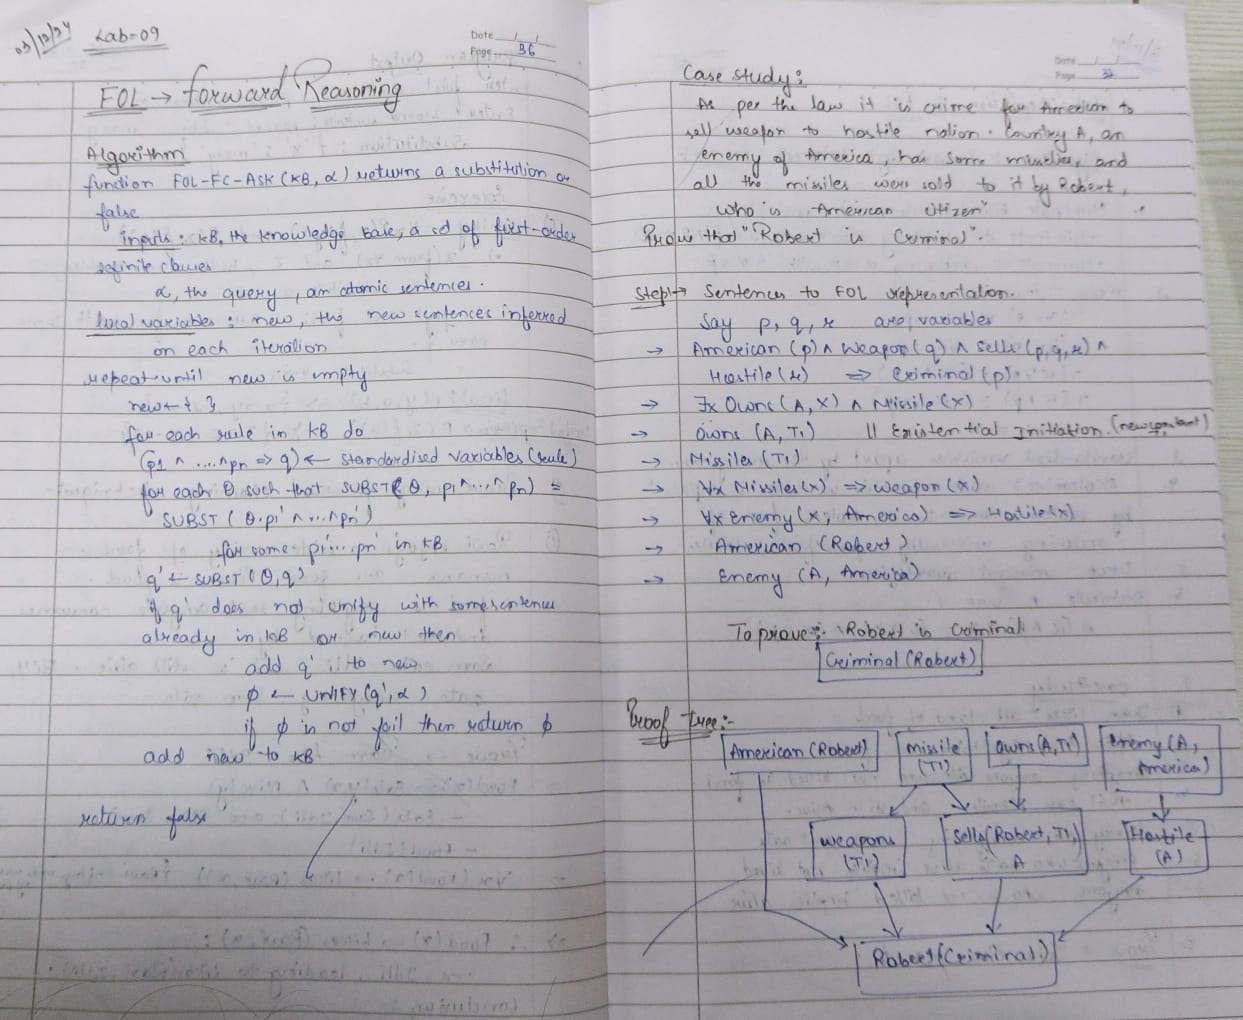 03/12/24
Lab-09
Date __/__/__
Page 36
FOL → Forward Reasoning
Algorithm
function FOL-FC-ASK (KB, α) returns a substitution or
false
inputs: KB, the knowledge base, a set of first-order
definite clauses
α, the query, an atomic sentences.
local variables: new, the new sentences inferred
on each iteration
repeat until new is empty
new ← { }
for each rule in KB do
(p1 ∧ .... ∧ pn ⇒ q) ← standardised variables (rule)
for each θ such that SUBST(θ, p1 ∧ ... ∧ pn) =
SUBST (θ. p1' ∧ ... ∧ pn')
for some p1' ... pn' in KB
q' ← SUBST (θ, q)
if q' does not unify with some sentences
already in KB or new then
add q' to new
φ ← UNIFY (q', α)
if φ is not fail then return φ
add new to KB
return false
Date __/__/__
Page 37
Case study:
As per the law it is crime for American to
sell weapon to hostile nation. Country A, an
enemy of America, has some missiles, and
all the missiles were sold to it by Robert,
who is American citizen"
Prove that "Robert is Criminal".
Step1 → Sentences to FOL representation.
Say p, q, r are variables
→ American (p) ∧ Weapon (q) ∧ Sells (p, q, r) ∧
Hostile (r) ⇒ Criminal (p).
→ ∃x Owns (A, X) ∧ Missile (x)
→ Owns (A, T1) // Existential Initiation. (new constant)
T1
→ Missiles (T1)
→ ∀x Missiles (x) ⇒ Weapon (x)
→ ∀x Enemy (x, America) ⇒ Hostile (x)
→ American (Robert)
→ Enemy (A, America)
To prove:- Robert is Criminal
Criminal (Robert)
Proof tree:-
American (Robert)
missile
(T1)
owns (A, T1)
Enemy (A,
America)
weapons
(T1)
Sells (Robert, T1,
A
Hostile
(A)
Robert (Criminal.)